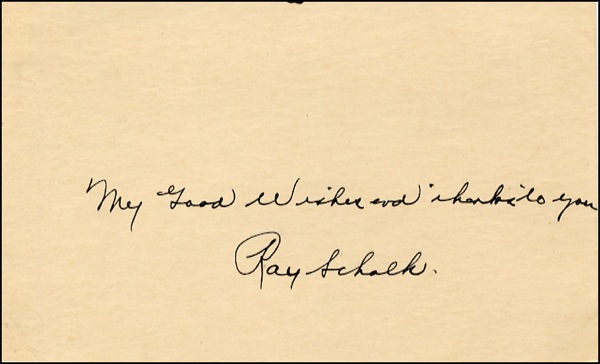 My Good Wishes and thanks to you
Ray Schalk.